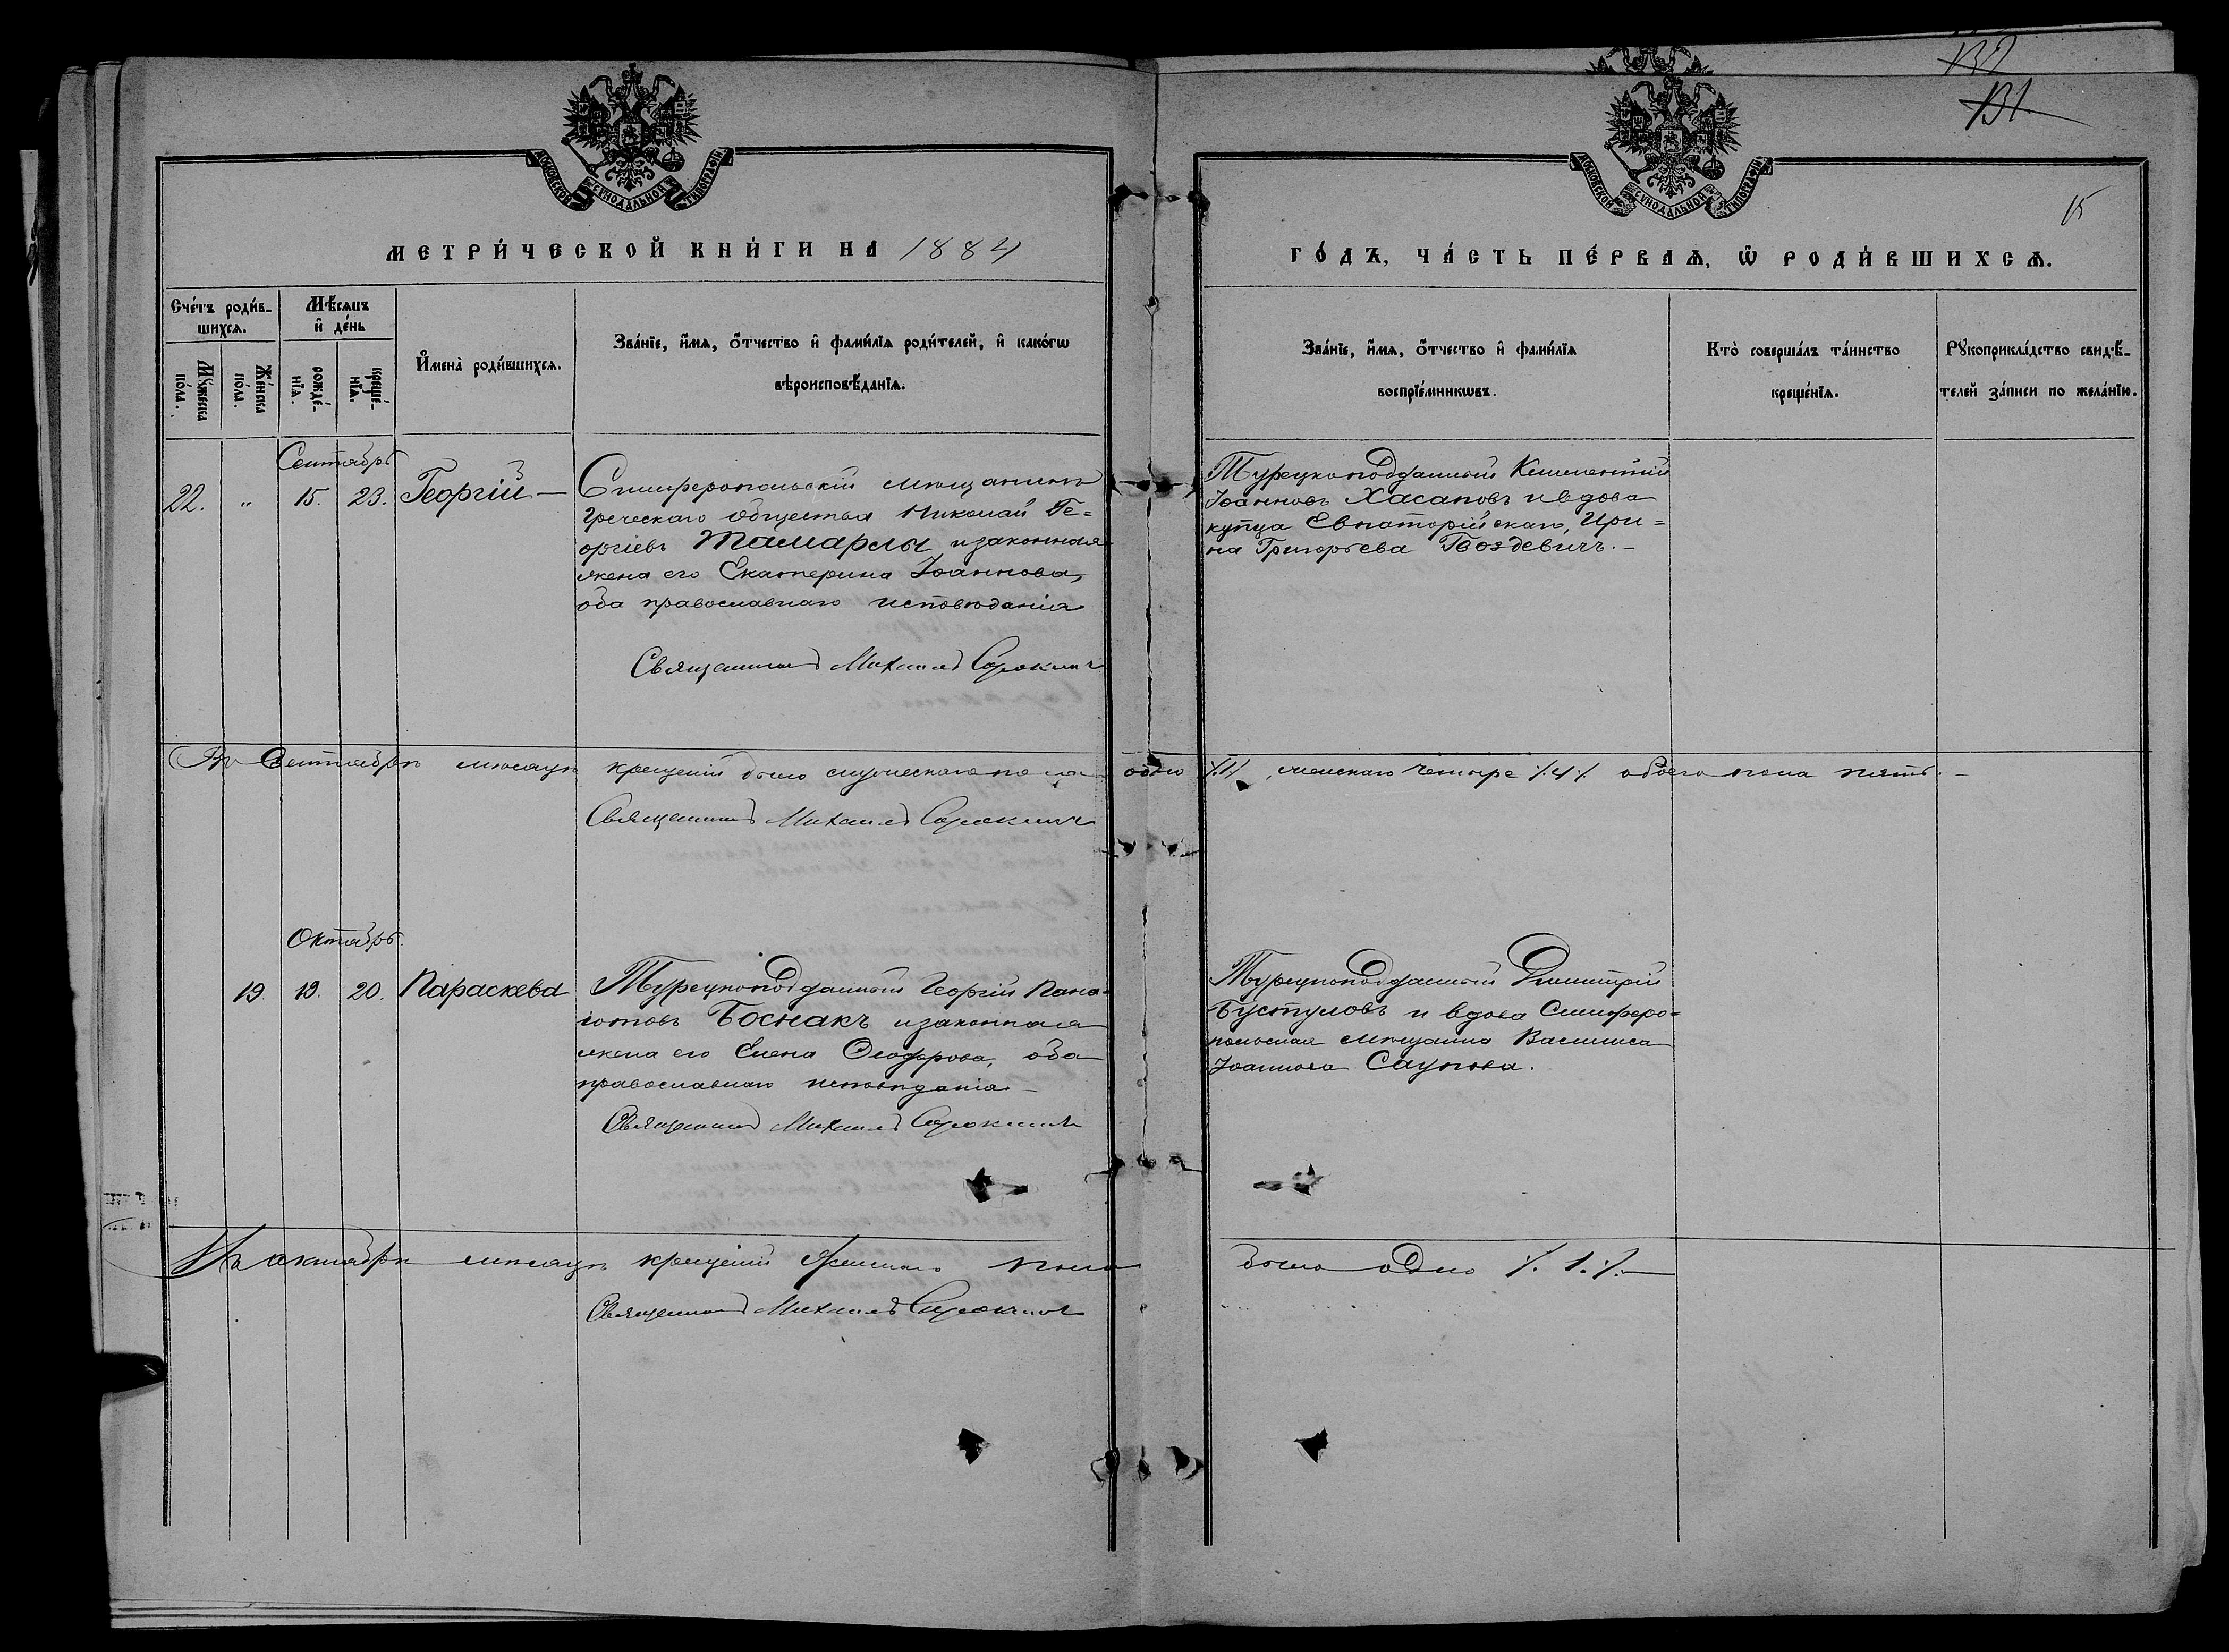 132
131
15
МОСКОВСКОЙ СУНОДАЛЬНОЙ ТИПОГРАФІИ
МОСКОВСКОЙ СУНОДАЛЬНОЙ ТИПОГРАФІИ
МЕТРИ́ЧЕСКОЙ КНИ́ГИ НА 1884
ГО́ДЪ, ЧА́СТЬ ПЕ́РВАѦ, Ѡ РОДИ́ВШИХСѦ.
Сче́тъ роди́в-
шихсѧ.
Мꙋ́жеска по́ла.
Же́нска по́ла.
Мѣ́сѧцъ
и҆ де́нь
рожде́-
нїѧ.
креще́-
нїѧ.
И҆мена̀ роди́вшихсѧ.
Зва́нїе, и҆́мѧ, ѻ҆́тчество и҆ фами́лїѧ роди́телей, и҆ како́гѡ
вѣроисповѣ́данїѧ.
Зва́нїе, и҆́мѧ, ѻ҆́тчество и҆ фами́лїѧ
воспрїе́мникѡвъ.
Кто̀ соверша́лъ та́инство
креще́нїѧ.
Рꙋкоприкла́дство свидѣ́-
телей за́писи по жела́нїю.
Сентябрь
22. " 15. 23. Георгій —
Симферопольскій мѣщанинъ
Греческаго Общества Николай Ге=
оргіевъ Тамарлы и законная
жена его Екатерина Іоаннова,
оба православнаго исповѣданія
Священникъ Михаилъ Сорокинъ
Турецкоподданный Климентій
Іоанновъ Хасаповъ и вдова
купца Евпаторійскаго, Ири=
на Григорьева Гвоздевичъ. —
Въ Сентябрѣ мѣсяцѣ крещеній было мужескаго пола одно /.1/. женскаго четыре /.4/. обоего пола пять. —
Священникъ Михаилъ Сорокинъ
Октябрь.
19 19. 20. Параскева
Турецкоподданный Георгій Пана-
іотовъ Боснакъ и законная
жена его Елена Ѳеодорова, оба
православнаго исповѣданія —
Священникъ Михаилъ Сорокинъ
Турецкоподданный Димитрій
Бустуловъ и вдова Симферо=
польская мѣщанка Василиса
Іоаннова
Въ октябрѣ мѣсяцѣ крещеній женскаго пола было одно /.1./. —
Священникъ Михаилъ Сорокинъ